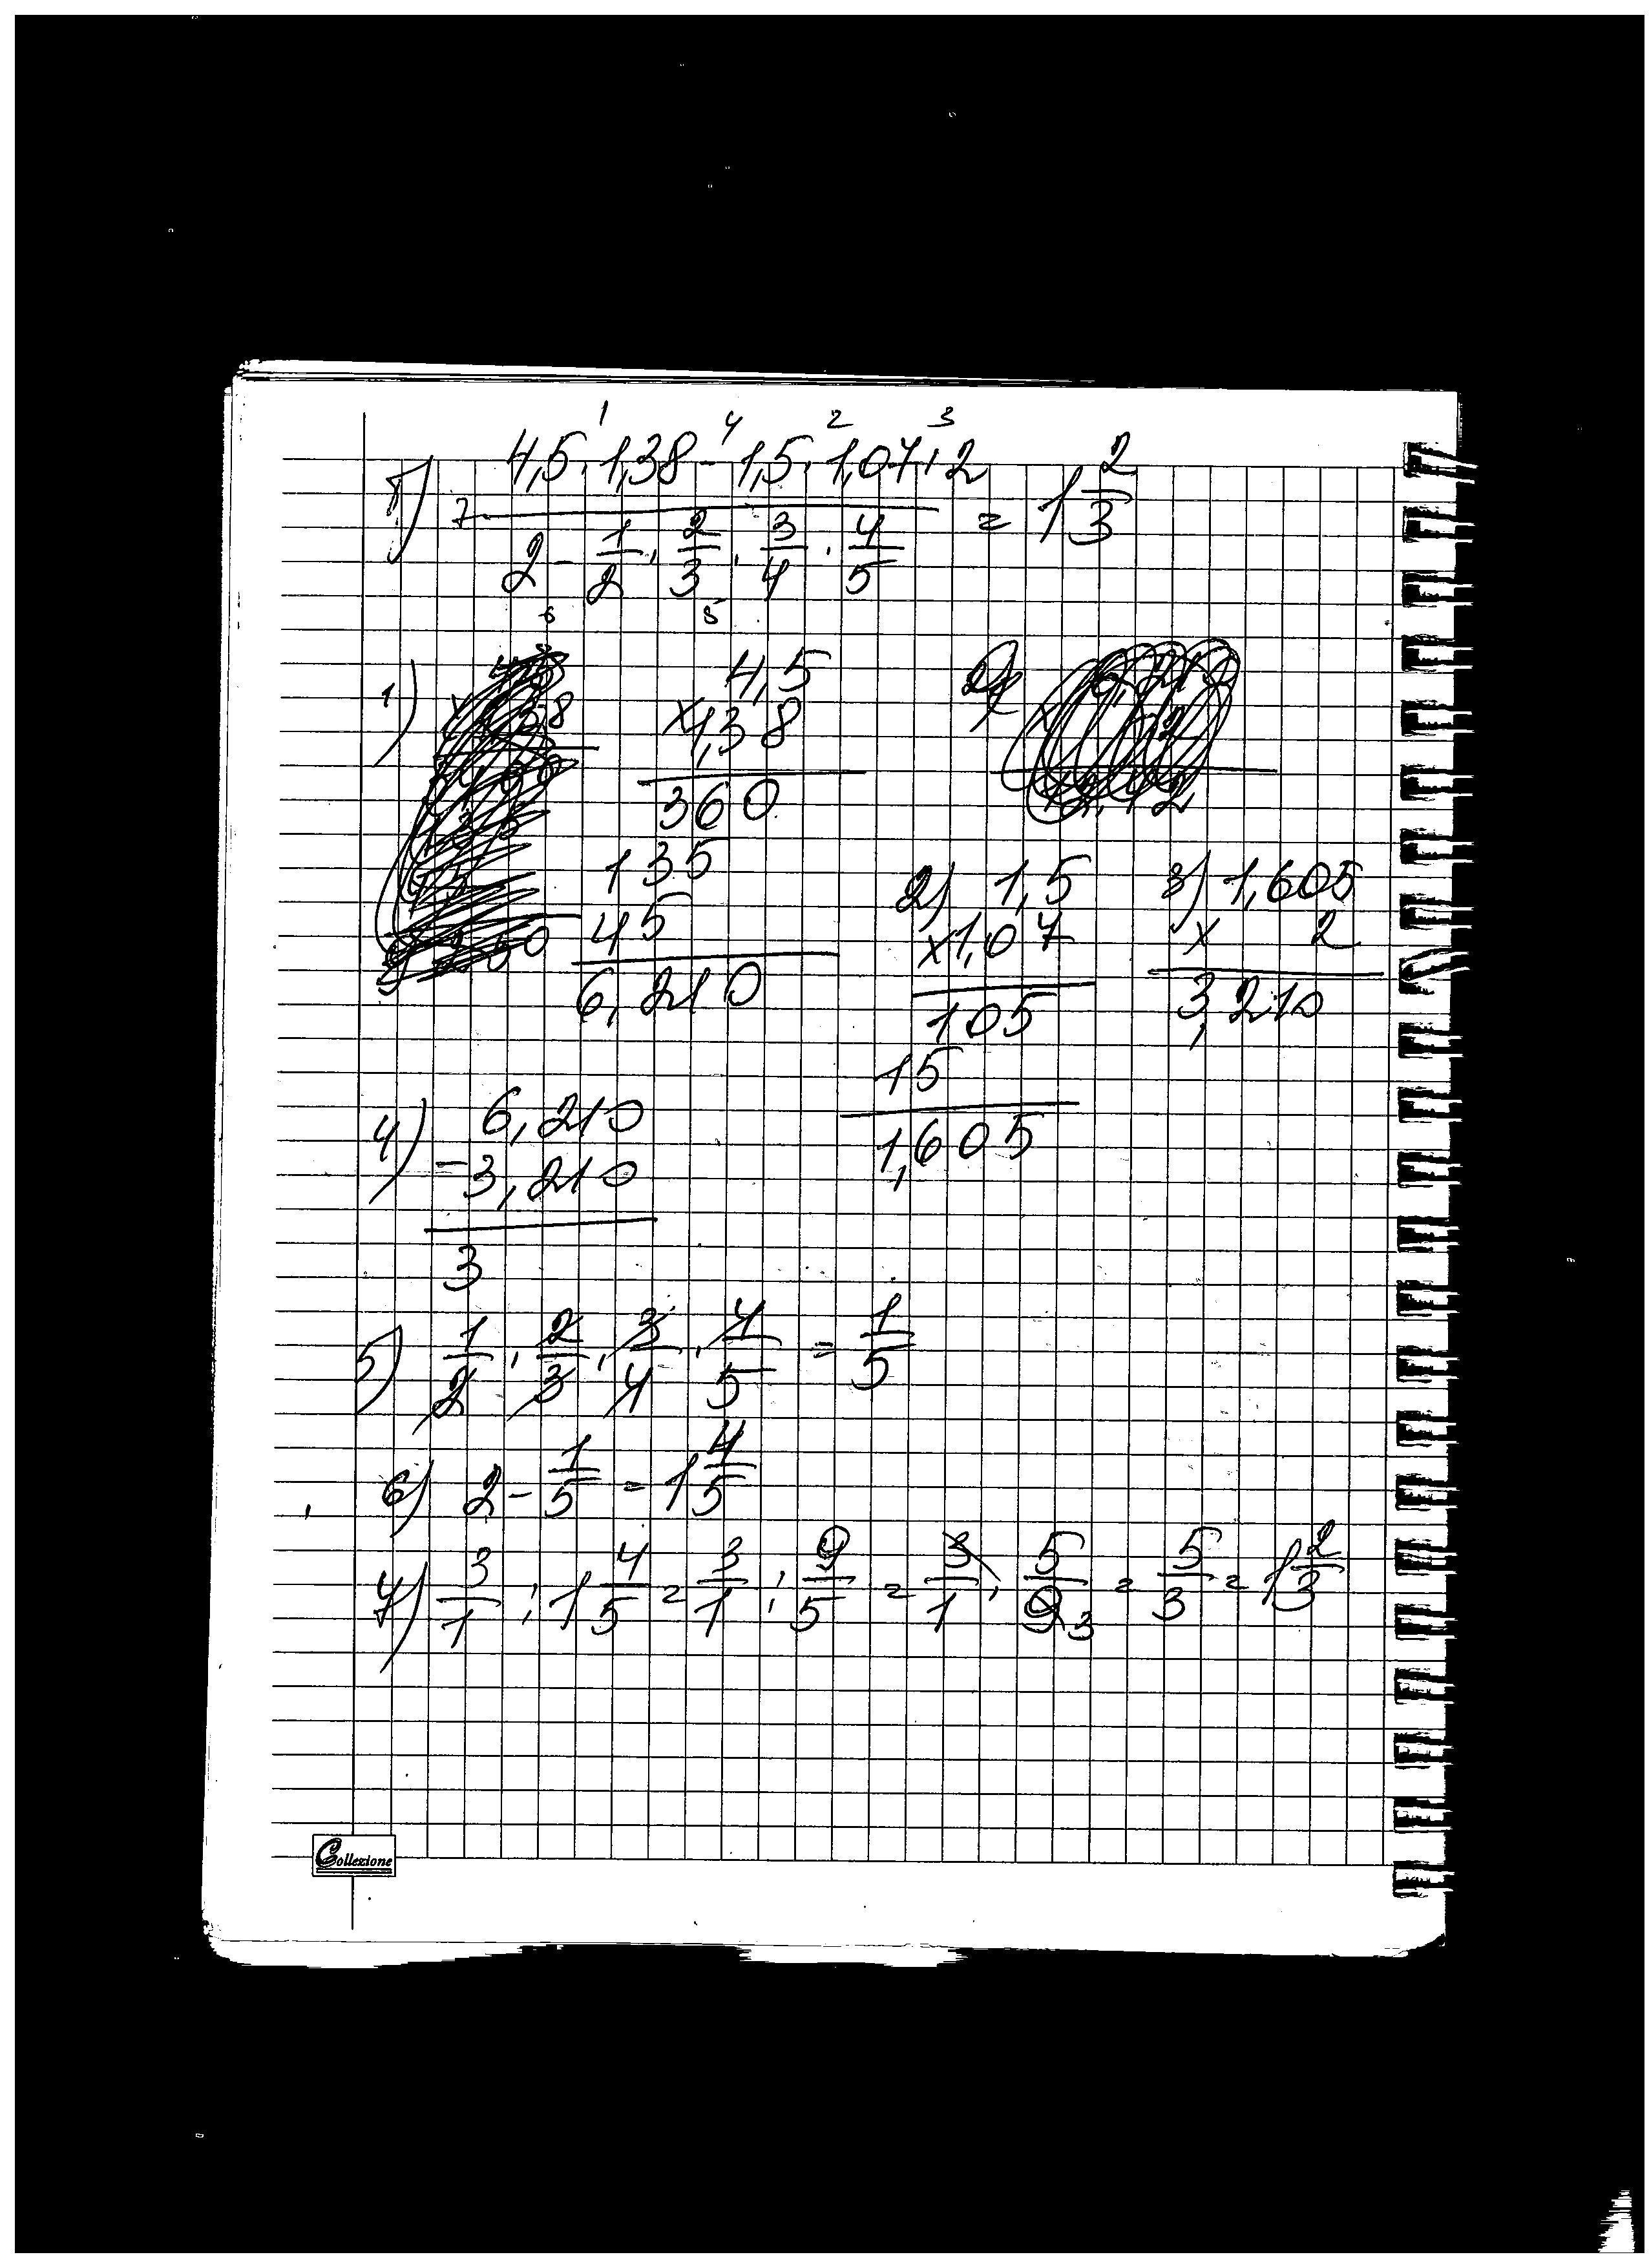 1 4 2 3
8) 4,5 · 1,38 - 1,5 · 1,07 · 2
7 —————————— = 1 2/3
2 - 1/2 · 2/3 · 3/4 · 4/5
6 5
1) 4,5
× 1,38
360
135
45
6,210
2) 1,5
× 1,07
105
15
1,605
3) 1,605
× 2
3,210
4) 6,210
- 3,210
3
5) 1/2 · 2/3 · 3/4 · 4/5 = 1/5
6) 2 - 1/5 = 1 4/5
7) 3/1 : 1 4/5 = 3/1 : 9/5 = 3/1 · 5/9 3 = 5/3 = 1 2/3
Collezione